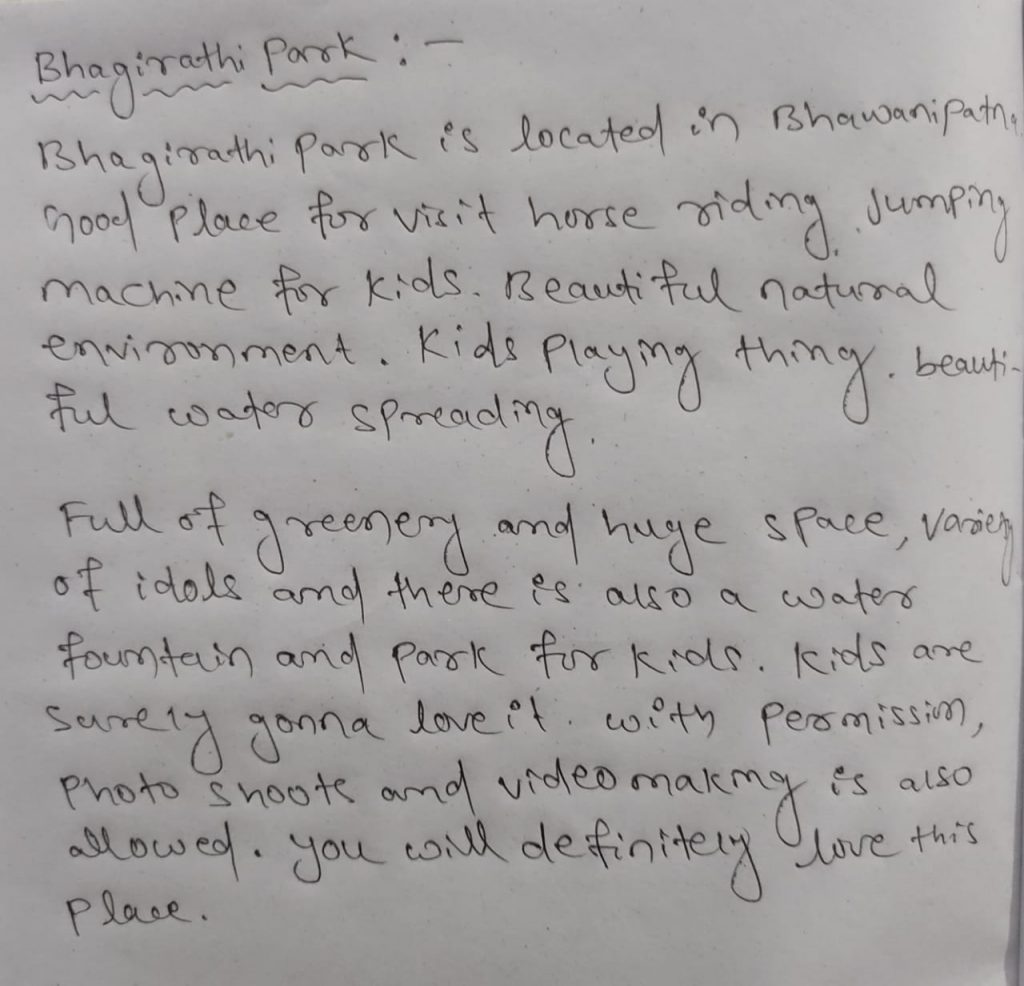 Bhagirathi Park : -
Bhagirathi Park is located in Bhawanipatna
Good Place for visit horse riding. Jumping
machine for kids. Beautiful natural
environment. Kids Playing thing. beauti-
ful water spreading.
Full of greenery and huge space, variety
of idols and there is also a water
fountain and Park for kids. Kids are
surely gonna love it. with Permission,
Photo shoots and video making is also
allowed. you will definitely love this
Place.